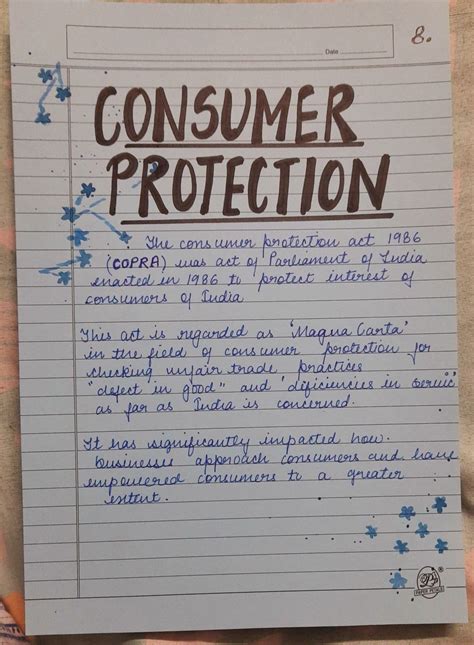 8.
Date
CONSUMER
PROTECTION
The consumer protection act 1986
(COPRA) was act of Parliament of India
enacted in 1986 to protect interest of
consumers of India
This act is regarded as 'Magna Carta'
in the field of consumer protection for
checking unfair trade practices
"defect in good" and 'dificiencies in servic
as far as India is concerned.
It has significantly impacted how
businesses approach consumers and have
empowered consumers to a greater
extent.
PAPER